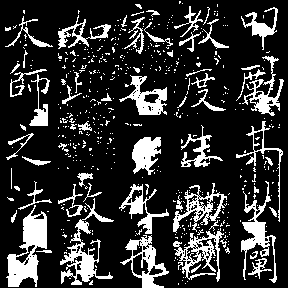 叩勵其以闡
教度生助國
家之化也
如此故親
大師之法